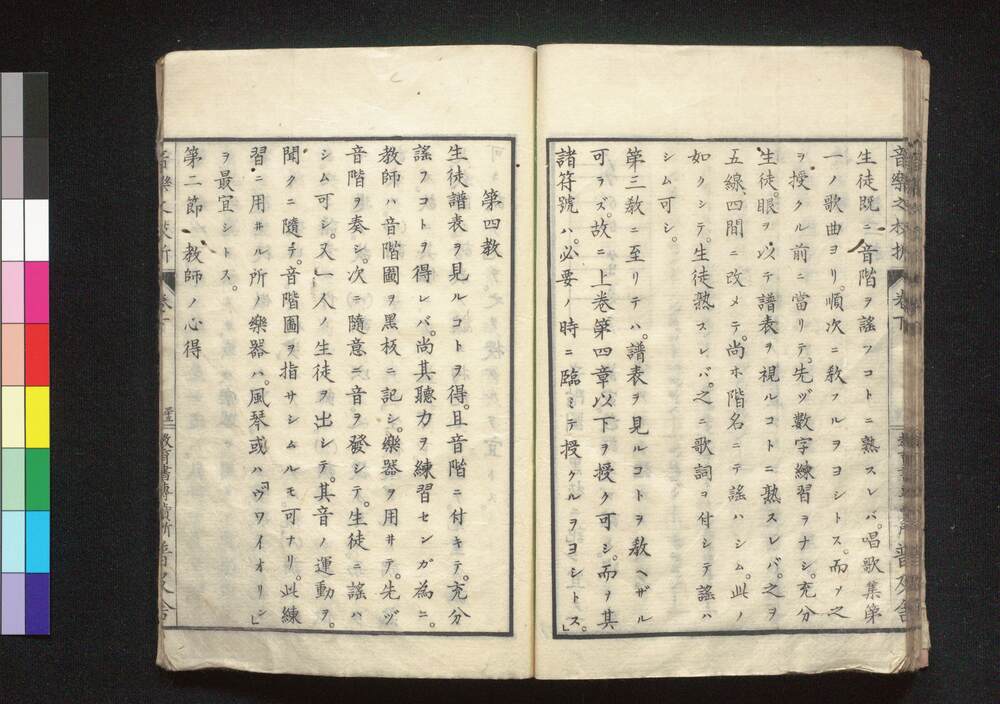 音樂之枝折 卷下
生徒既ニ音階ヲ謠フコトニ熟スレバ。唱歌集第
一ノ歌曲ヨリ。順次ニ敎フルヲヨシトス。而ヲ之
ヲ授クル前ニ當リテ。先ヅ數字練習ヲナシ。充分
生徒。眼ヲ以テ譜表ヲ視ルコトニ熟スレバ。之ヲ
五線、四間ニ改メテ。尚ホ階名ニテ謠ハシム。此ノ
如クシテ。生徒熟スレバ。之ニ歌詞ヲ付シテ謠ハ
シム可シ。
第三敎ニ至リテハ。譜表ヲ見ルコトヲ敎ヘザル
可ラズ。故ニ上卷第四章以下ヲ授ク可シ。而ヲ其
諸符號ハ。必要ノ時ニ臨ミテ授クルヲヨシトス。」
第四敎
生徒譜表ヲ見ルコトヲ得。且音階ニ付キテ。充分
謠フコトヲ得レバ。尚其聽力ヲ練習センガ為ニ。
敎師ハ音階圖ヲ黑板ニ記シ。樂器ヲ用ヰテ。先ヅ
音階ヲ奏シ。次ニ隨意ニ音ヲ發シテ。生徒ニ謠ハ
シム可シ。又一人ノ生徒ヲ出シテ。其音ノ運動ヲ。
聞クニ隨チ。音階圖ヲ指サシムルモ。可ナリ。此練
習ニ用ヰル所ノ樂器ハ。風琴或ハ「ヴワイオリン」
ヲ最宜シトス。
第二節 敎師ノ心得